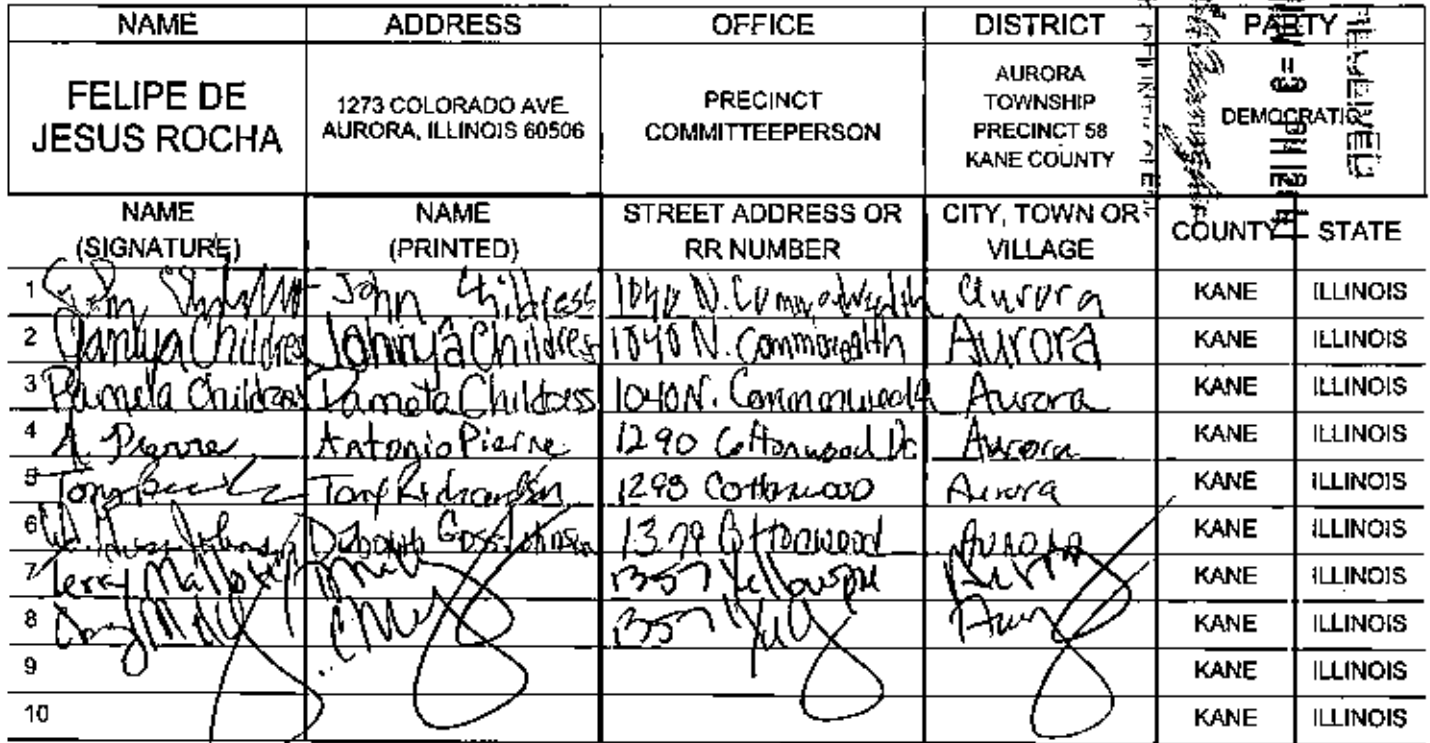 NAME ADDRESS OFFICE DISTRICT PARTY
FELIPE DE JESUS ROCHA
1273 COLORADO AVE. AURORA, ILLINOIS 60506
PRECINCT COMMITTEEPERSON
AURORA TOWNSHIP PRECINCT 58 KANE COUNTY
DEMOCRATIC
RECEIVED
NAME (SIGNATURE) NAME (PRINTED) STREET ADDRESS OR RR NUMBER CITY, TOWN OR VILLAGE COUNTY STATE
1 John Childress 1040 N. Commonwealth Aurora KANE ILLINOIS
2 Childress Johnya Childress 1040 N. Commonwealth Aurora KANE ILLINOIS
3 Pamela Childress Pamela Childress 1040 N. Commonwealth Aurora KANE ILLINOIS
4 A. Pierre Antonio Pierre 1290 Cottonwood Dr Aurora KANE ILLINOIS
5 Tony Richardson 1298 Cottonwood Aurora KANE ILLINOIS
6 Deborah 1379 Cottonwood Aurora KANE ILLINOIS
7 Terry 1357 Aurora KANE ILLINOIS
8 1357 KANE ILLINOIS
9 KANE ILLINOIS
10 KANE ILLINOIS